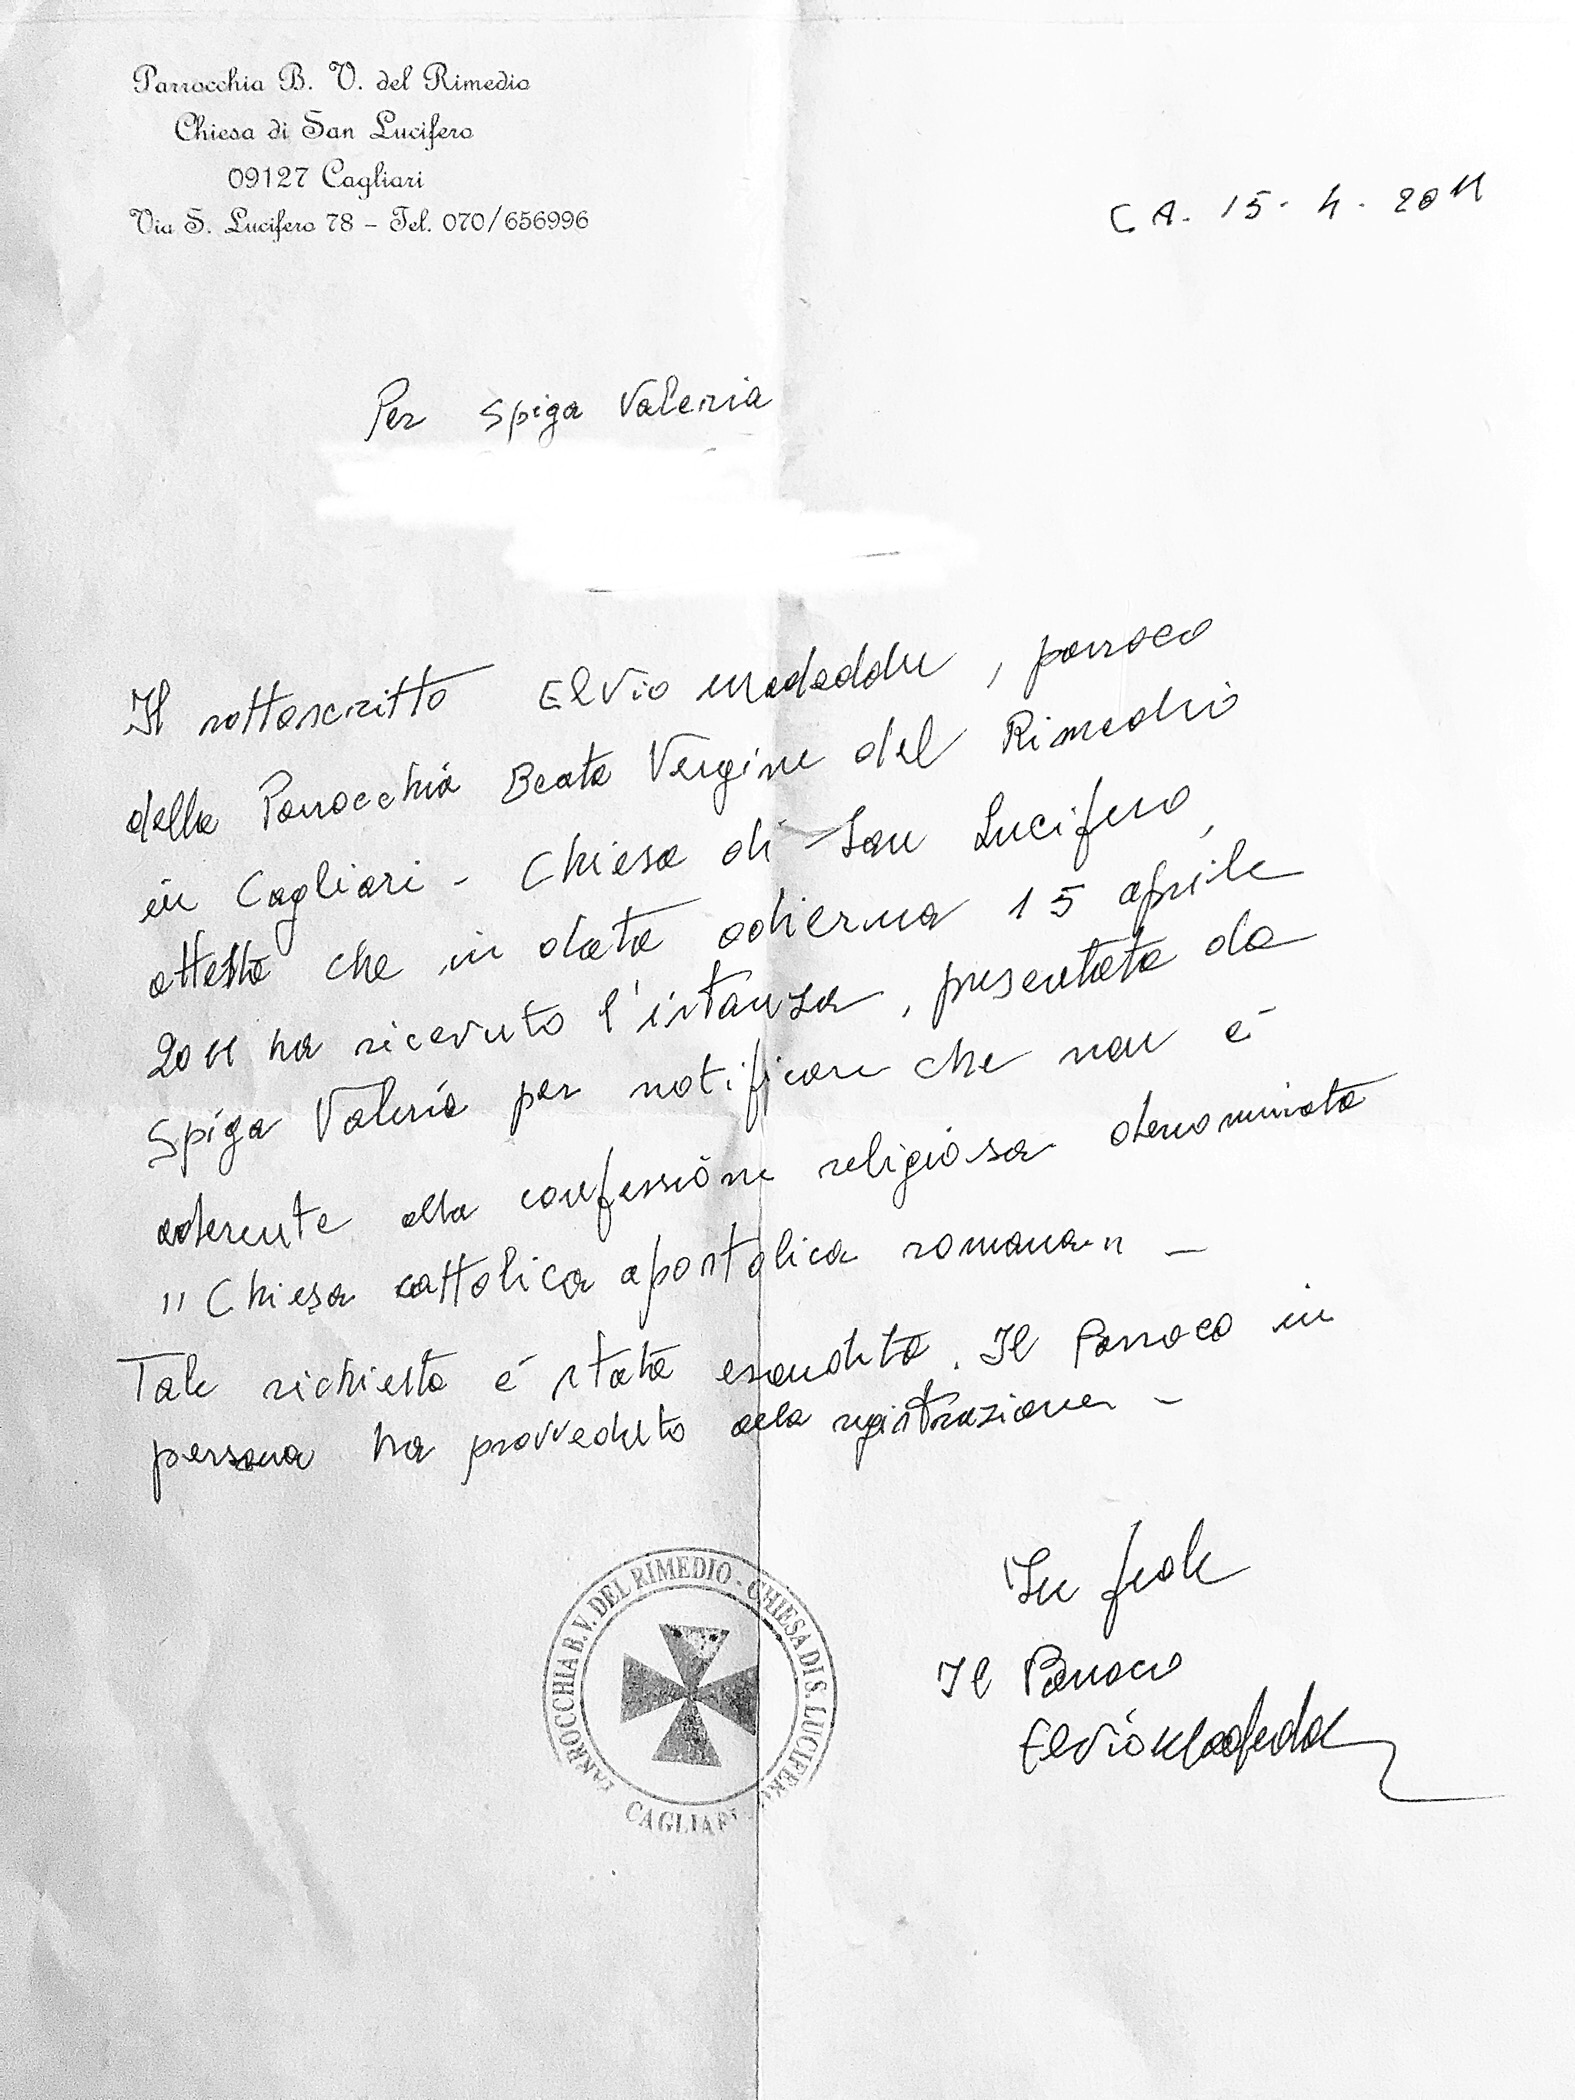 Parrocchia B. V. del Rimedio
Chiesa di San Lucifero
09127 Cagliari
Via S. Lucifero 78 - Tel. 070/656996
CA. 15-4-2011
Per Spiga Valeria
Il sottoscritto Elvio Madeddu, parroco
della Parrocchia Beata Vergine del Rimedio
in Cagliari - Chiesa di San Lucifero,
attesta che in data odierna 15 aprile
2011 ha ricevuto l'istanza, presentata da
Spiga Valeria per notificare che non è
aderente alla confessione religiosa denominata
"Chiesa cattolica apostolica romana" -
Tale richiesta è stata esaudita. Il Parroco in
persona ha provveduto alla registrazione -
In fede
Il Parroco
Elvio Madeddu
PARROCCHIA B.V. DEL RIMEDIO - CHIESA DI S. LUCIFERO
CAGLIARI